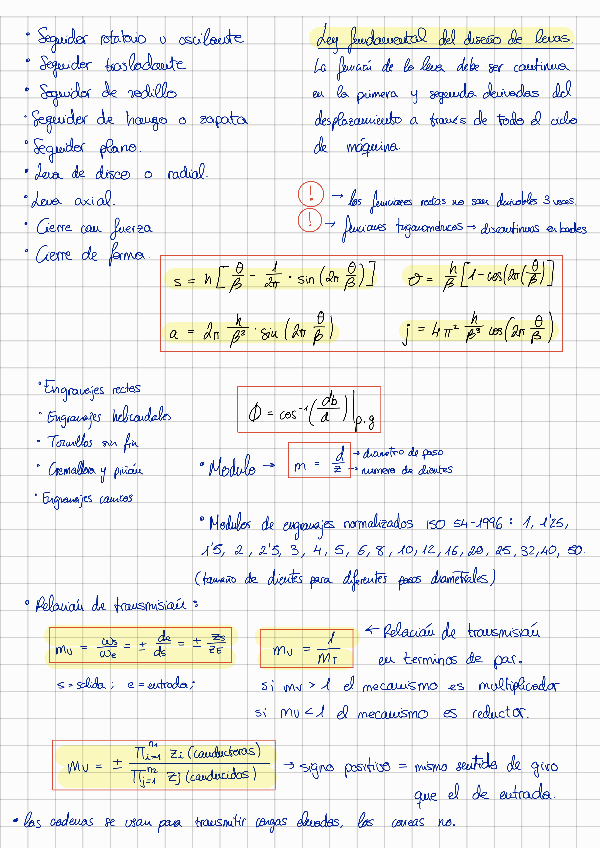 • Seguidor rotatorio u oscilante
• Seguidor trasladante
• Seguidor de rodillo
• Seguidor de hongo o zapata
• Seguidor plano.
• Leva de disco o radial.
• Leva axial.
• Cierre con fuerza
• Cierre de forma.
Ley fundamental del diseño de levas.
La función de la leva debe ser continua
en la primera y segunda derivadas del
desplazamiento a través de todo el ciclo
de máquina.
! → las funciones rectas no son derivables 3 veces.
! → funciones trigonométricas → discontinuas en bordes
s = h [ θ/β - 1/2π · sin (2π θ/β) ]
v = h/β [ 1 - cos(2π (θ/β) ]
a = 2π h/β² · sin (2π θ/β)
j = 4π² h/β³ cos (2π θ/β)
• Engranajes rectos
• Engranajes helicoidales
• Tornillos sin fin
• Cremallera y piñón
• Engranajes conicos
Φ = cos⁻¹ (db/d) | p.g
• Modulo → m = d/z → diametro de paso → numero de dientes
• Modulos de engranajes normalizados ISO 54-1996 : 1, 1'25,
1'5, 2, 2'5, 3, 4, 5, 6, 8, 10, 12, 16, 20, 25, 32, 40, 50.
(tamaño de dientes para diferentes pasos diametrales)
• Relación de transmisión :
mᵥ = ωs/ωe = ± de/ds = ± zs/zE
s = salida ; e = entrada ;
mᵥ = 1/mT
← Relación de transmisión
en terminos de par.
si mv > 1 el mecanismo es multiplicador
si mv < 1 el mecanismo es reductor.
Mᵥ = ± ∏ⁿ¹ᵢ₌₁ zi (conductoras) / ∏ⁿ²ⱼ₌₁ zj (conducidas) → signo positivo = mismo sentido de giro
que el de entrada.
• las cadenas se usan para transmitir cargas elevadas, las correas no.